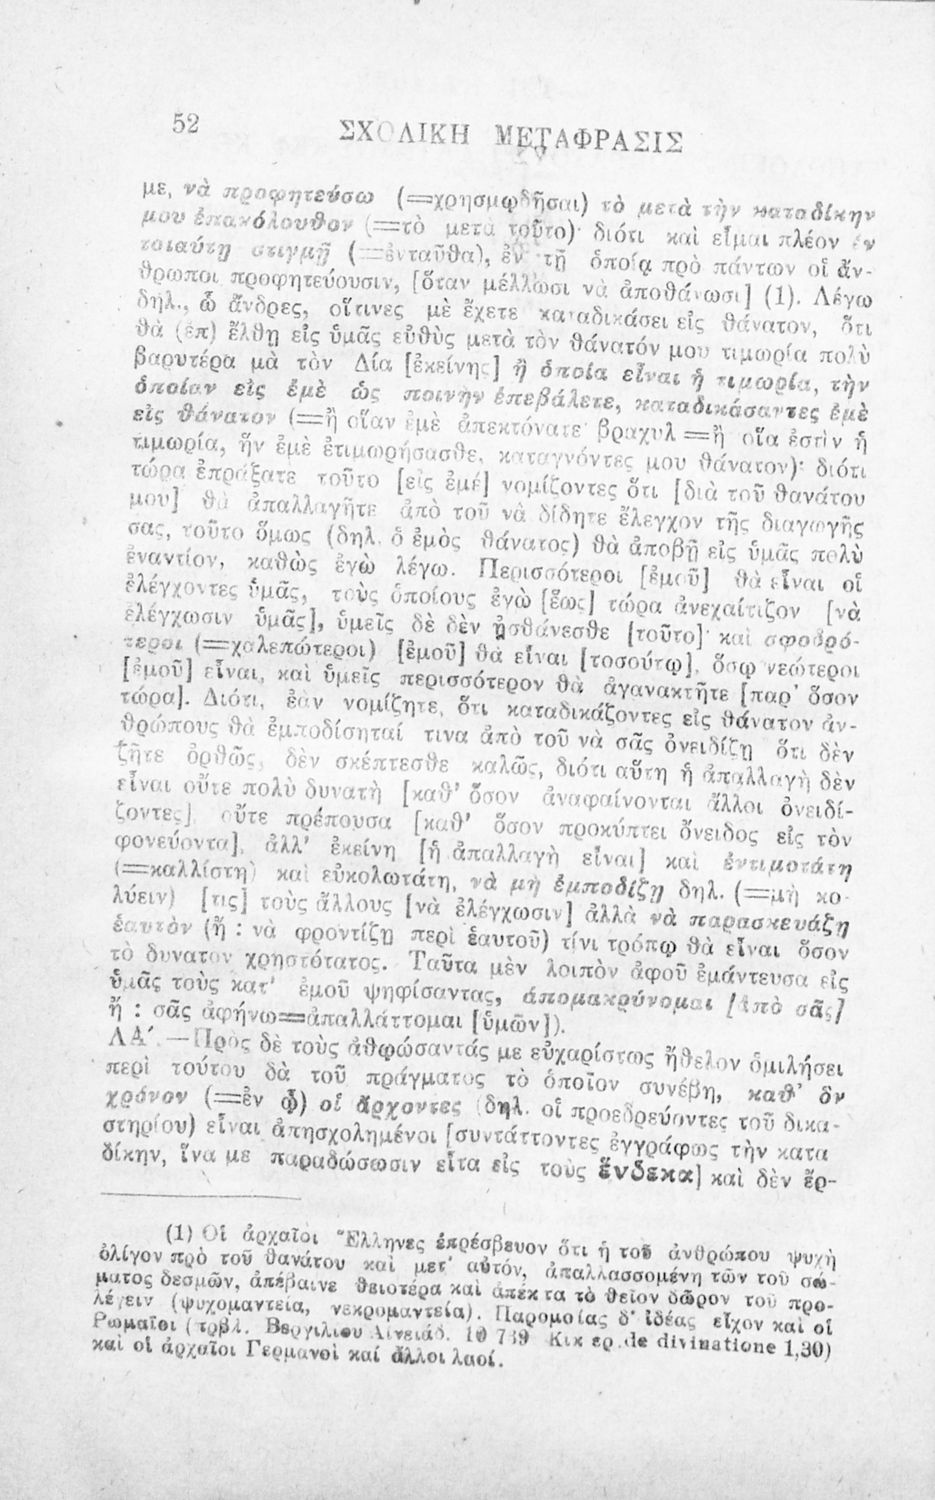 52
ΣΧΟΛΙΚΗ ΜΕΤΑΦΡΑΣΙΣ
με, νὰ προφητεύσω (=χρησμῳδῆσαι) τὸ μετὰ τὴν καταδίκην
μου ἐπακόλουθον (=τὸ μετὰ τοῦτο)· διότι καὶ εἶμαι πλέον ἐν
τοιαύτῃ στιγμῇ (=ἐνταῦθα), ἐν τῇ ὁποίᾳ πρὸ πάντων οἱ ἄν-
θρωποι προφητεύουσιν, [ὅταν μέλλωσι νὰ ἀποθάνωσι] (1). Λέγω
δηλ., ὦ ἄνδρες, οἵτινες μὲ ἔχετε καταδικάσει εἰς θάνατον, ὅτι
θὰ (ἐπ) ἔλθῃ εἰς ὑμᾶς εὐθὺς μετὰ τὸν θάνατόν μου τιμωρία πολὺ
βαρυτέρα μὰ τὸν Δία [ἐκείνης] ἢ ὁποία εἶναι ἡ τιμωρία, τὴν
ὁποίαν εἰς ἐμὲ ὡς ποινὴν ἐπεβάλετε, καταδικάσαντες ἐμὲ
εἰς θάνατον (=ἢ οἵαν ἐμὲ ἀπεκτόνατε· βραχυλ=ἢ οἵα ἐστὶν ἡ
τιμωρία, ἣν ἐμὲ ἐτιμωρήσασθε, καταγνόντες μου θάνατον)· διότι
τώρα ἐπράξατε τοῦτο [εἰς ἐμέ] νομίζοντες ὅτι [διὰ τοῦ θανάτου
μου] θὰ ἀπαλλαγῆτε ἀπὸ τοῦ νὰ δίδητε ἔλεγχον τῆς διαγωγῆς
σας, τοῦτο ὅμως (δηλ. ὁ ἐμὸς θάνατος) θὰ ἀποβῇ εἰς ὑμᾶς πολὺ
ἐναντίον, καθὼς ἐγὼ λέγω. Περισσότεροι [ἐμοῦ] θὰ εἶναι οἱ
ἐλέγχοντες ὑμᾶς, τοὺς ὁποίους ἐγὼ [ἕως] τώρα ἀνεχαίτιζον [νὰ
ἐλέγχωσιν ὑμᾶς], ὑμεῖς δὲ δὲν ᾐσθάνεσθε [τοῦτο]· καὶ σφοδρό-
τεροι (=χαλεπώτεροι) [ἐμοῦ] θὰ εἶναι [τοσούτῳ], ὅσῳ νεώτεροι
[ἐμοῦ] εἶναι, καὶ ὑμεῖς περισσότερον θὰ ἀγανακτῆτε [παρ' ὅσον
τώρα]. Διότι, ἐὰν νομίζητε, ὅτι καταδικάζοντες εἰς θάνατον ἀν-
θρώπους θὰ ἐμποδίσηταί τινα ἀπὸ τοῦ νὰ σᾶς ὀνειδίζῃ ὅτι δὲν
ζῆτε ὀρθῶς, δὲν σκέπτεσθε καλῶς, διότι αὕτη ἡ ἀπαλλαγὴ δὲν
εἶναι οὔτε πολὺ δυνατὴ [καθ' ὅσον ἀναφαίνονται ἄλλοι ὀνειδί-
ζοντες] οὔτε πρέπουσα [καθ' ὅσον προκύπτει ὄνειδος εἰς τὸν
φονεύοντα], ἀλλ' ἐκείνη [ἡ ἀπαλλαγὴ εἶναι] καὶ ἐντιμοτάτη
(=καλλίστη) καὶ εὐκολωτάτη, νὰ μὴ ἐμποδίζῃ δηλ. (=μὴ κο-
λύειν) [τις] τοὺς ἄλλους [νὰ ἐλέγχωσιν] ἀλλὰ νὰ παρασκευάζῃ
ἑαυτὸν (ἤ : νὰ φροντίζῃ περὶ ἑαυτοῦ) τίνι τρόπῳ θὰ εἶναι ὅσον
τὸ δυνατὸν χρηστότατος. Ταῦτα μὲν λοιπὸν ἀφοῦ ἐμάντευσα εἰς
ὑμᾶς τοὺς κατ' ἐμοῦ ψηφίσαντας, ἀπομακρύνομαι [ἀπὸ σᾶς]
ἤ : σᾶς ἀφήνω=ἀπαλλάττομαι [ὑμῶν]).
ΛΑ΄.—Πρὸς δὲ τοὺς ἀθῳώσαντάς με εὐχαρίστως ἤθελον ὁμιλήσει
περὶ τούτου δὰ τοῦ πράγματος τὸ ὁποῖον συνέβη, καθ' ὃν
χρόνον (=ἐν ᾧ) οἱ ἄρχοντες (δηλ. οἱ προεδρεύοντες τοῦ δικα-
στηρίου) εἶναι ἀπησχολημένοι [συντάττοντες ἐγγράφως τὴν κατα
δίκην, ἵνα με παραδώσωσιν εἶτα εἰς τοὺς ἕνδεκα] καὶ δὲν ἔρ-
(1) Οἱ ἀρχαῖοι Ἕλληνες ἐπρέσβευον ὅτι ἡ τοῦ ἀνθρώπου ψυχὴ
ὀλίγον πρὸ τοῦ θανάτου καὶ μετ' αὐτόν, ἀπαλλασσομένη τῶν τοῦ σώ-
ματος δεσμῶν, ἀπέβαινε θειοτέρα καὶ ἀπέκτα τὸ θεῖον δῶρον τοῦ προ-
λέγειν (ψυχομαντεία, νεκρομαντεία). Παρομοίας δ' ἰδέας εἶχον καὶ οἱ
Ρωμαῖοι (τρβλ. Βεργιλίου Αἰνειάδ. 10 739 Κικερ. de divinatione 1,30)
καὶ οἱ ἀρχαῖοι Γερμανοὶ καί ἄλλοι λαοί.